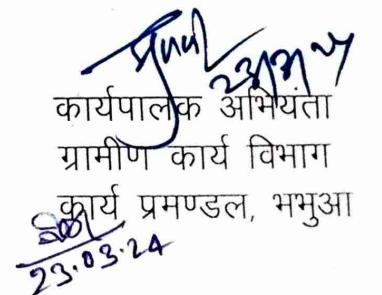 कार्यपालक अभियंता
ग्रामीण कार्य विभाग
कार्य प्रमण्डल, भभुआ
23.03.24